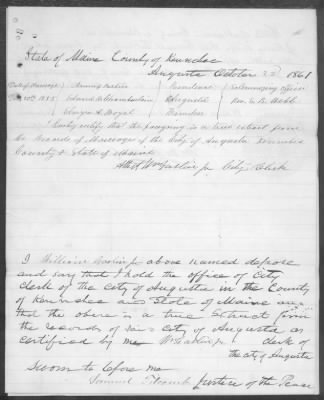 State of Maine County of Kennebec
Augusta October 22 1861
Date of Marriage Names of Parties Residence Solemnizing Officer
10th 1855 Edward A Chamberlain Augusta Rev. E. B. Webb
Boyal Windsor
I hereby certify that the foregoing is a true extract from
the Records of Marriages of the City of Augusta Kennebec
County & State of Maine
Attest Wm Gaslin Jr City Clerk
I William Gaslin Jr above named depose
and say that I hold the office of City
clerk of the city of Augusta in the County
of Kennebec and State of Maine and
that the above is a true extract from
the records of said city of Augusta as
certified by me Wm Gaslin Jr clerk of
the city of Augusta
Sworn to before me
Samuel Titcomb Justice of the Peace